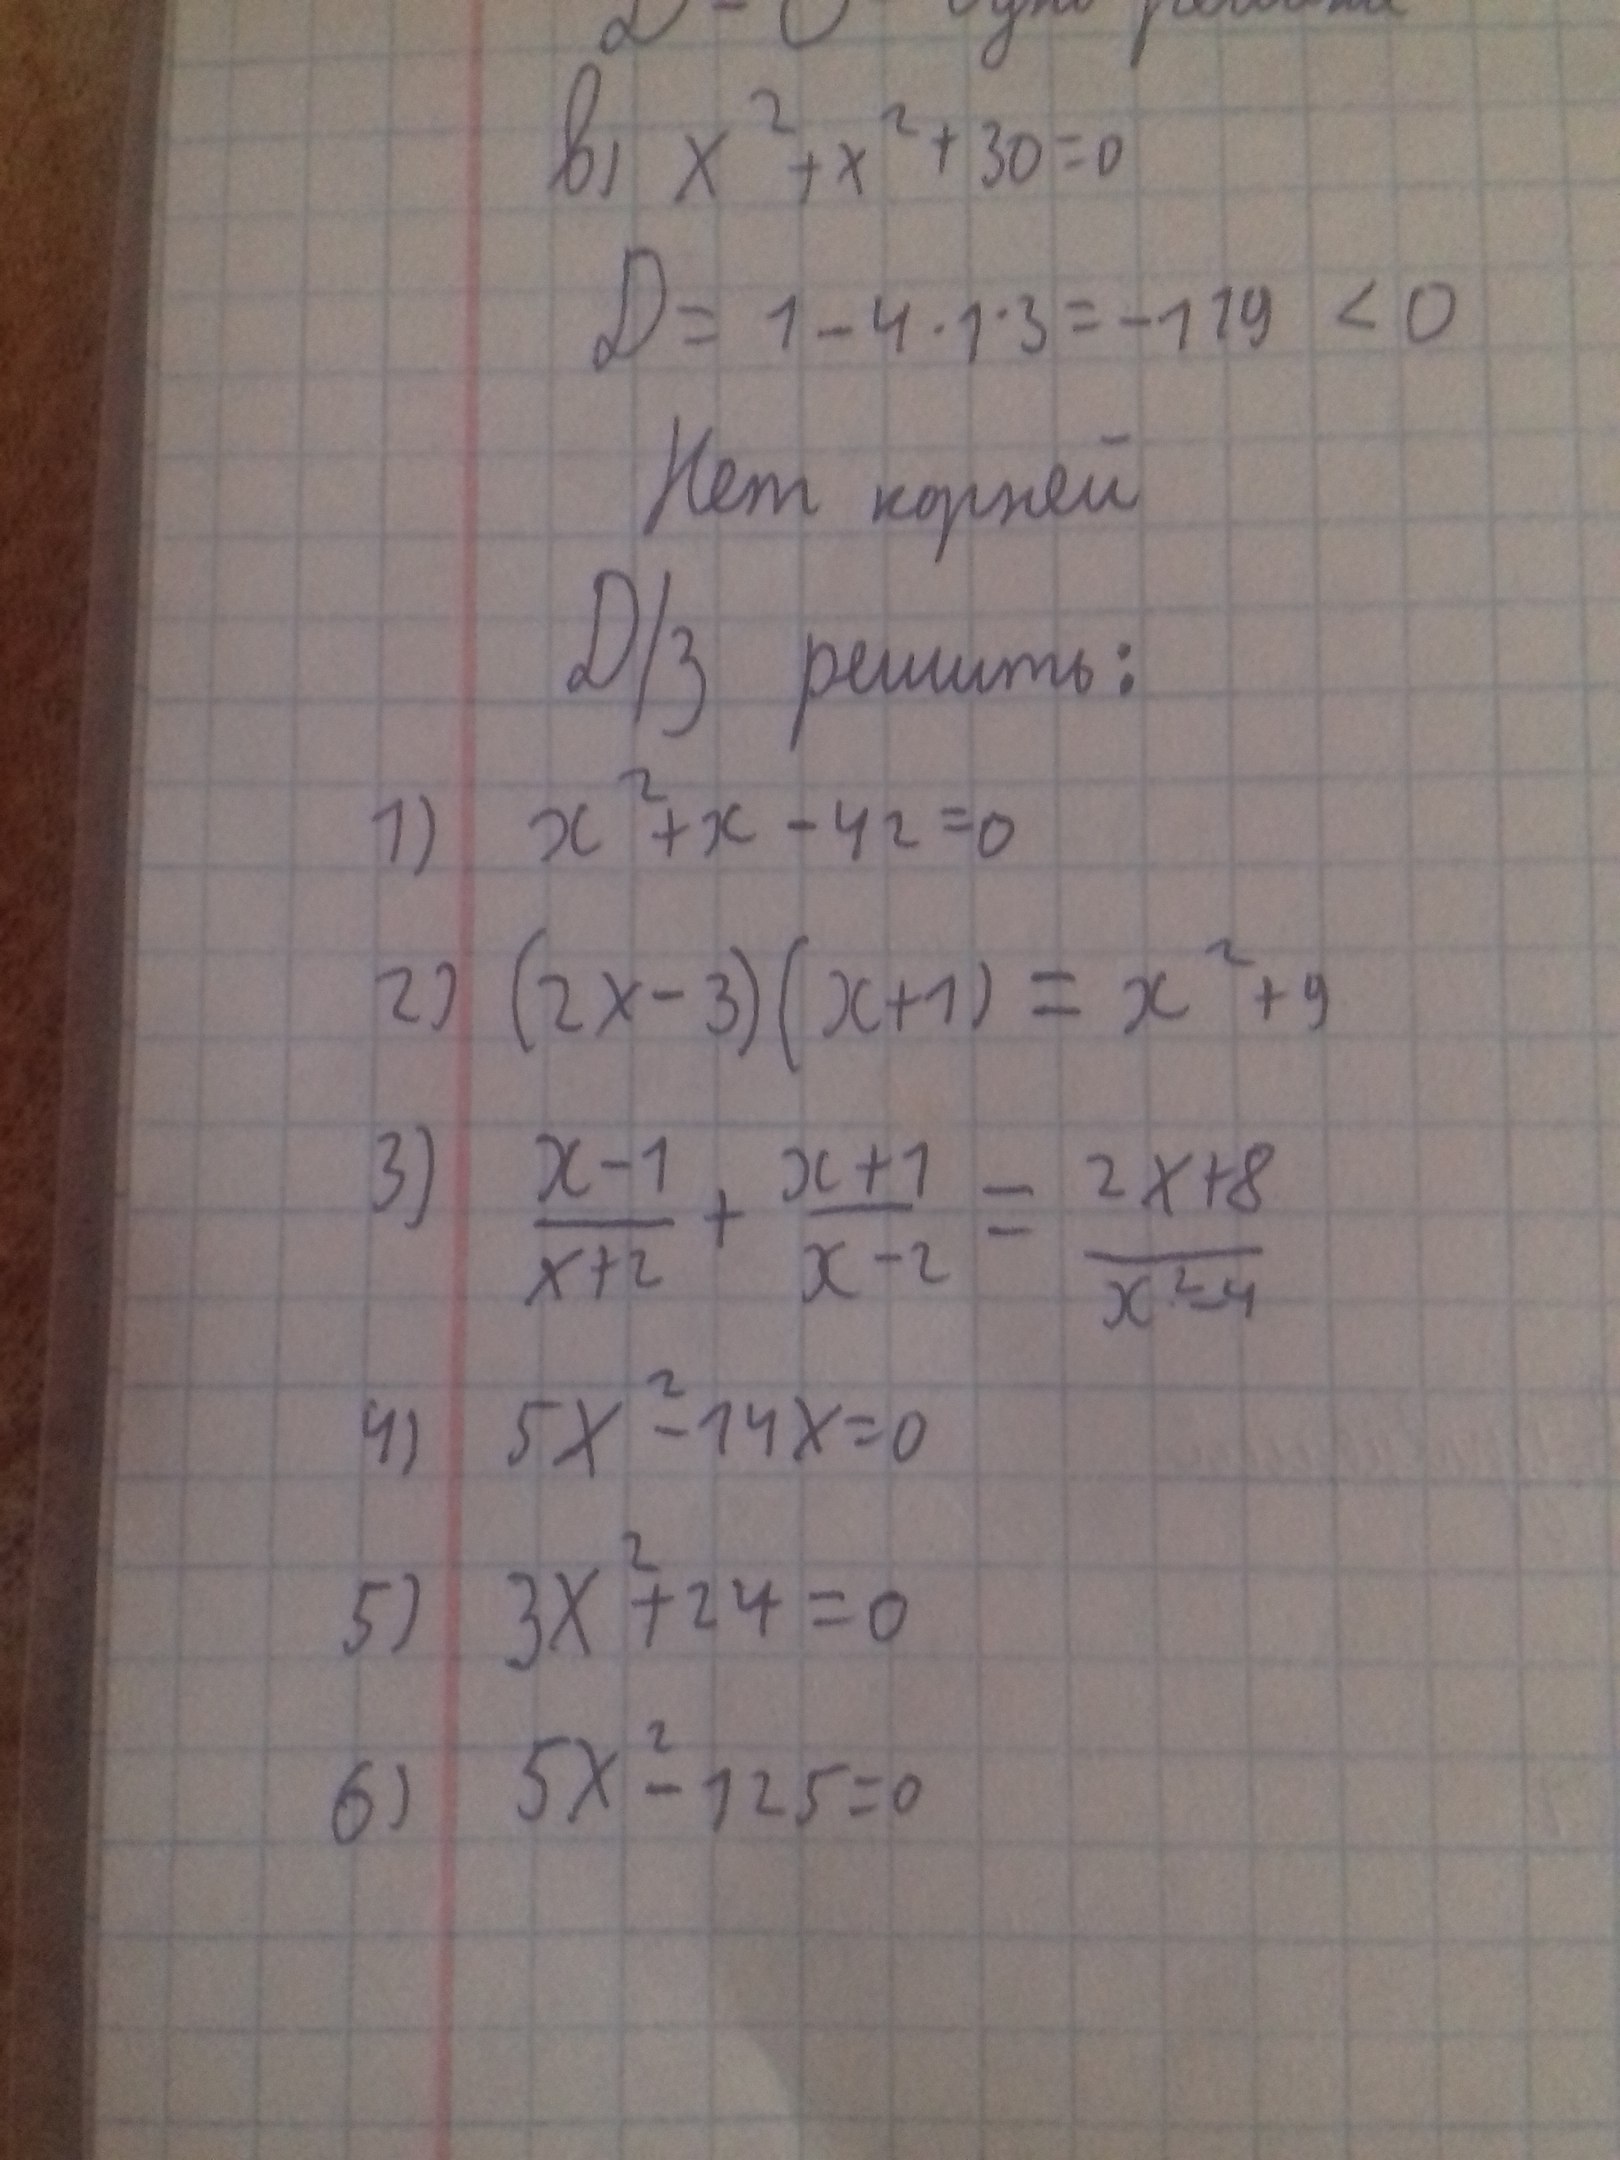 D = 0
в) x²+x²+30=0
D = 1-4·1·3=-119 < 0
Нет корней
D/з решить:
1) x²+x-42=0
2) (2x-3)(x+1) = x²+9
3) x-1/x+2 + x+1/x-2 = 2x+8/x²-4
4) 5x²-14x=0
5) 3x²+24=0
6) 5x²-125=0